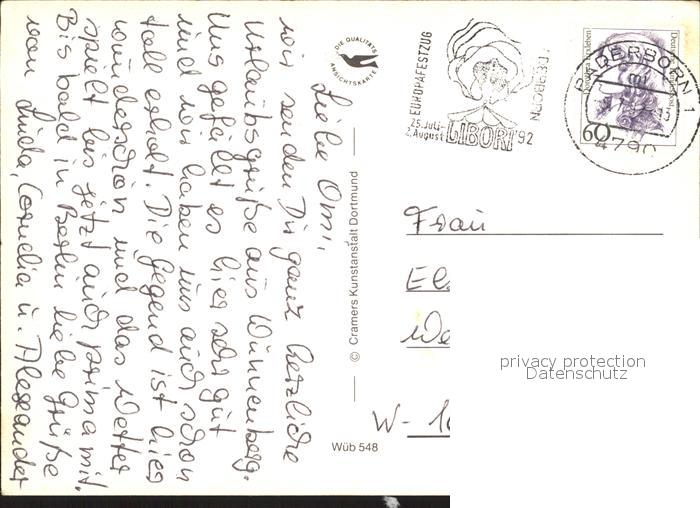 Liebe Omi,
wir senden Dir ganz herzliche
Urlaubsgrüße aus Wünnenberg.
Uns gefällt es hier sehr gut
und wir haben uns auch schon
toll erholt. Die Gegend ist hier
wunderschön und das Wetter
spielt bis jetzt auch prima mit.
Bis bald in Berlin liebe Grüße
von Linda, Cornelia u. Alexander
DIE QUALITÄTS
ANSICHTSKARTE
© Cramers Kunstanstalt Dortmund
Wüb 548
EUROPAFESTZUG
25. Juli-
2. August LIBORI '92
PADERBORN
PADERBORN 1
m
4790
Deutsche Bundespost
60
Frau
W-
privacy protection
Datenschutz